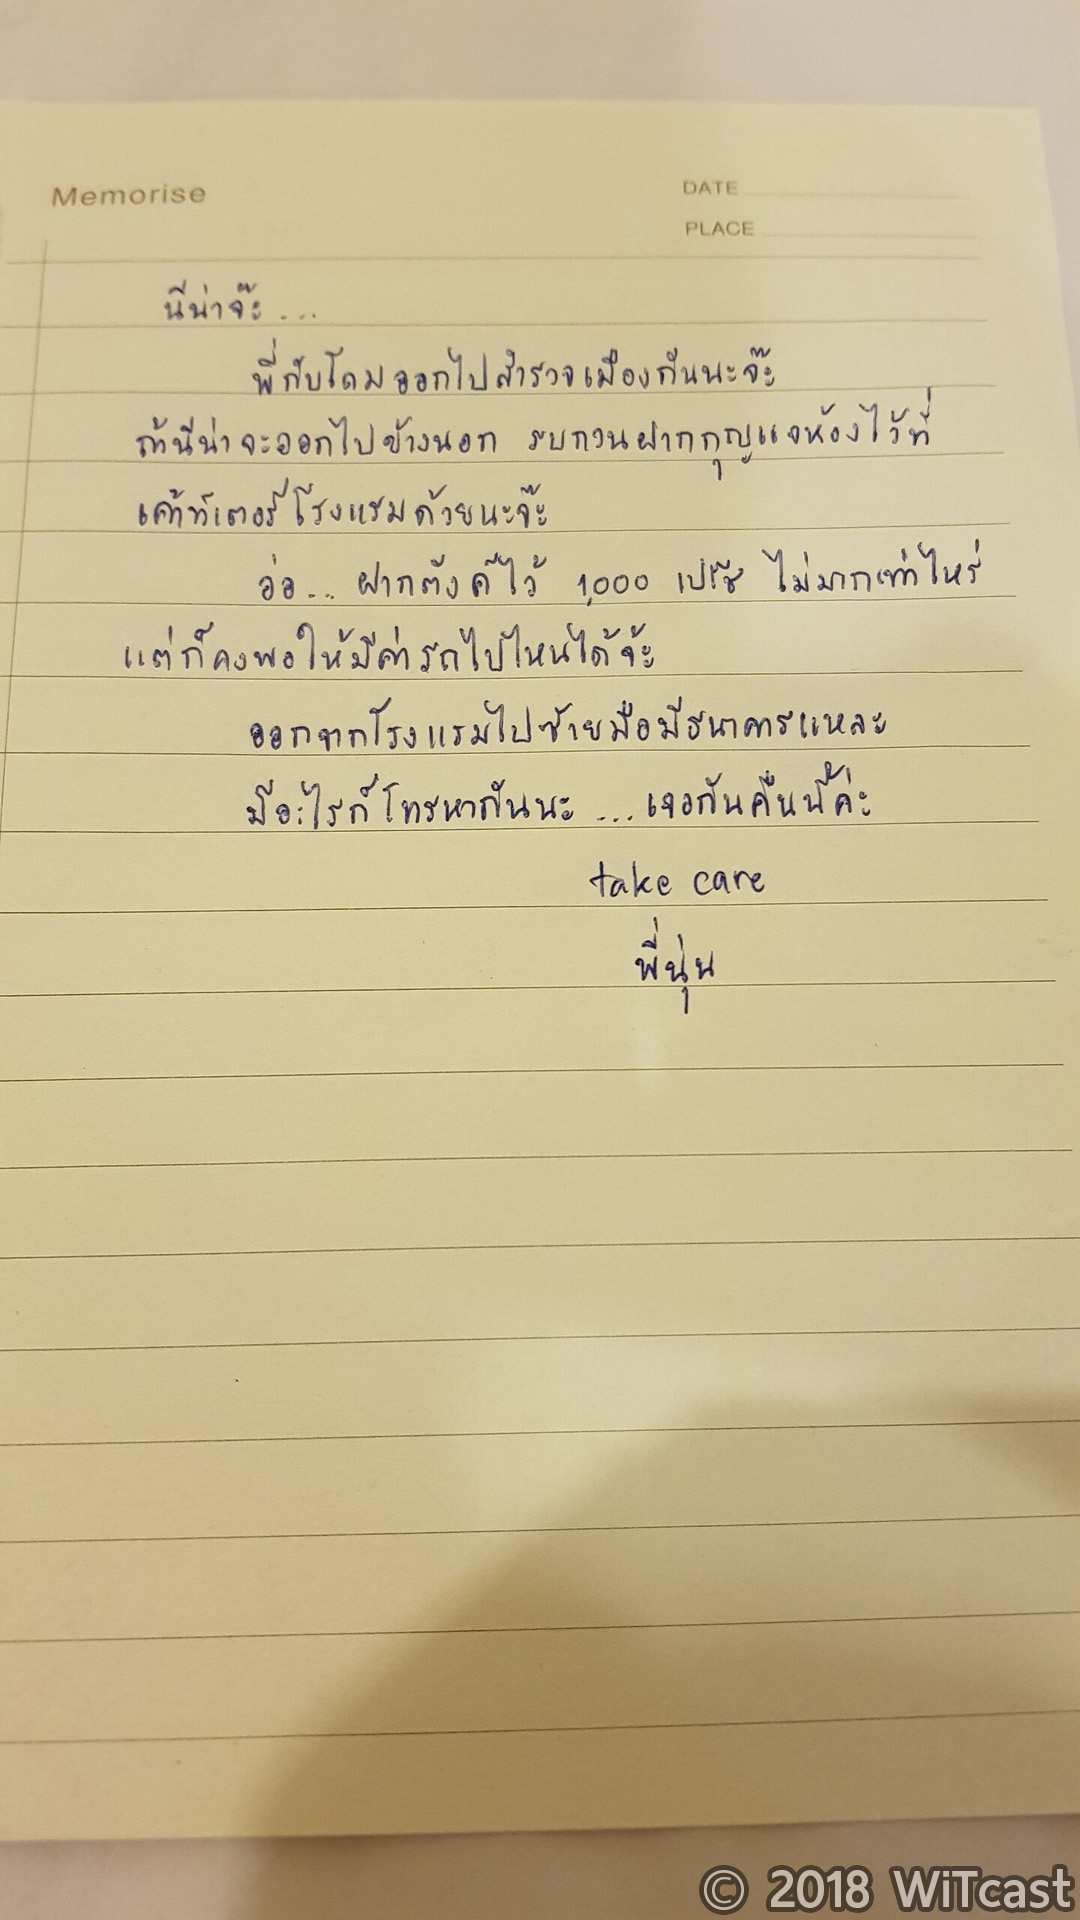 Memorise
DATE
PLACE
นีน่าจ๊ะ ...
พี่กับโดมออกไปสำรวจเมืองกันนะจ๊ะ
ถ้านีน่าจะออกไปข้างนอก รบกวนฝากกุญแจห้องไว้ที่
เค้าท์เตอร์โรงแรมด้วยนะจ๊ะ
อ่อ... ฝากตังค์ไว้ 1,000 เปโซ ไม่มากเท่าไหร่
แต่ก็คงพอให้มีค่ารถไปไหนได้จ้ะ
ออกจากโรงแรมไปซ้ายมือมีธนาคารแหละ
มีอะไรก็โทรหากันนะ ... เจอกันคืนนี้ค่ะ
take care
พี่นุ่น
© 2018 WiTcast